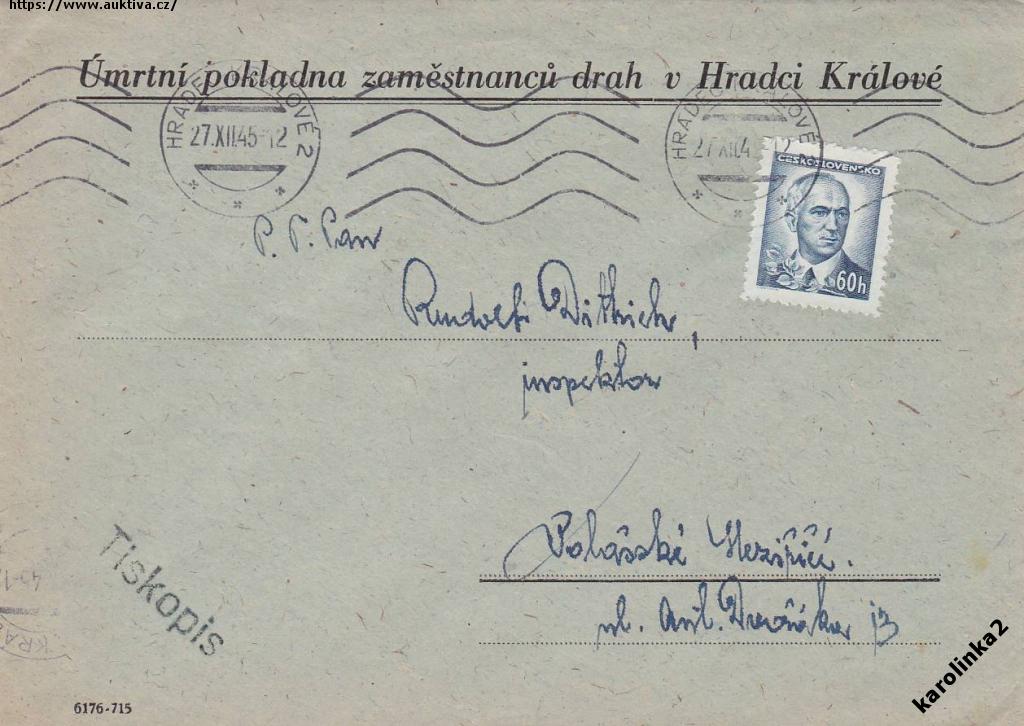 https://www.auktiva.cz/
Úmrtní pokladna zaměstnanců drah v Hradci Králové
HRADEC KRÁLOVÉ 2
27.XII.45-12
HRADEC KRÁLOVÉ
27.XII.4 12
ČESKOSLOVENSKO
60h
P. T. Pan
Rudolf Dittrich,
inspektor
Valašské Meziříčí.
ul. Ant. Dvořáka 13
Tiskopis
KRÁ
6176-715
karolinka2